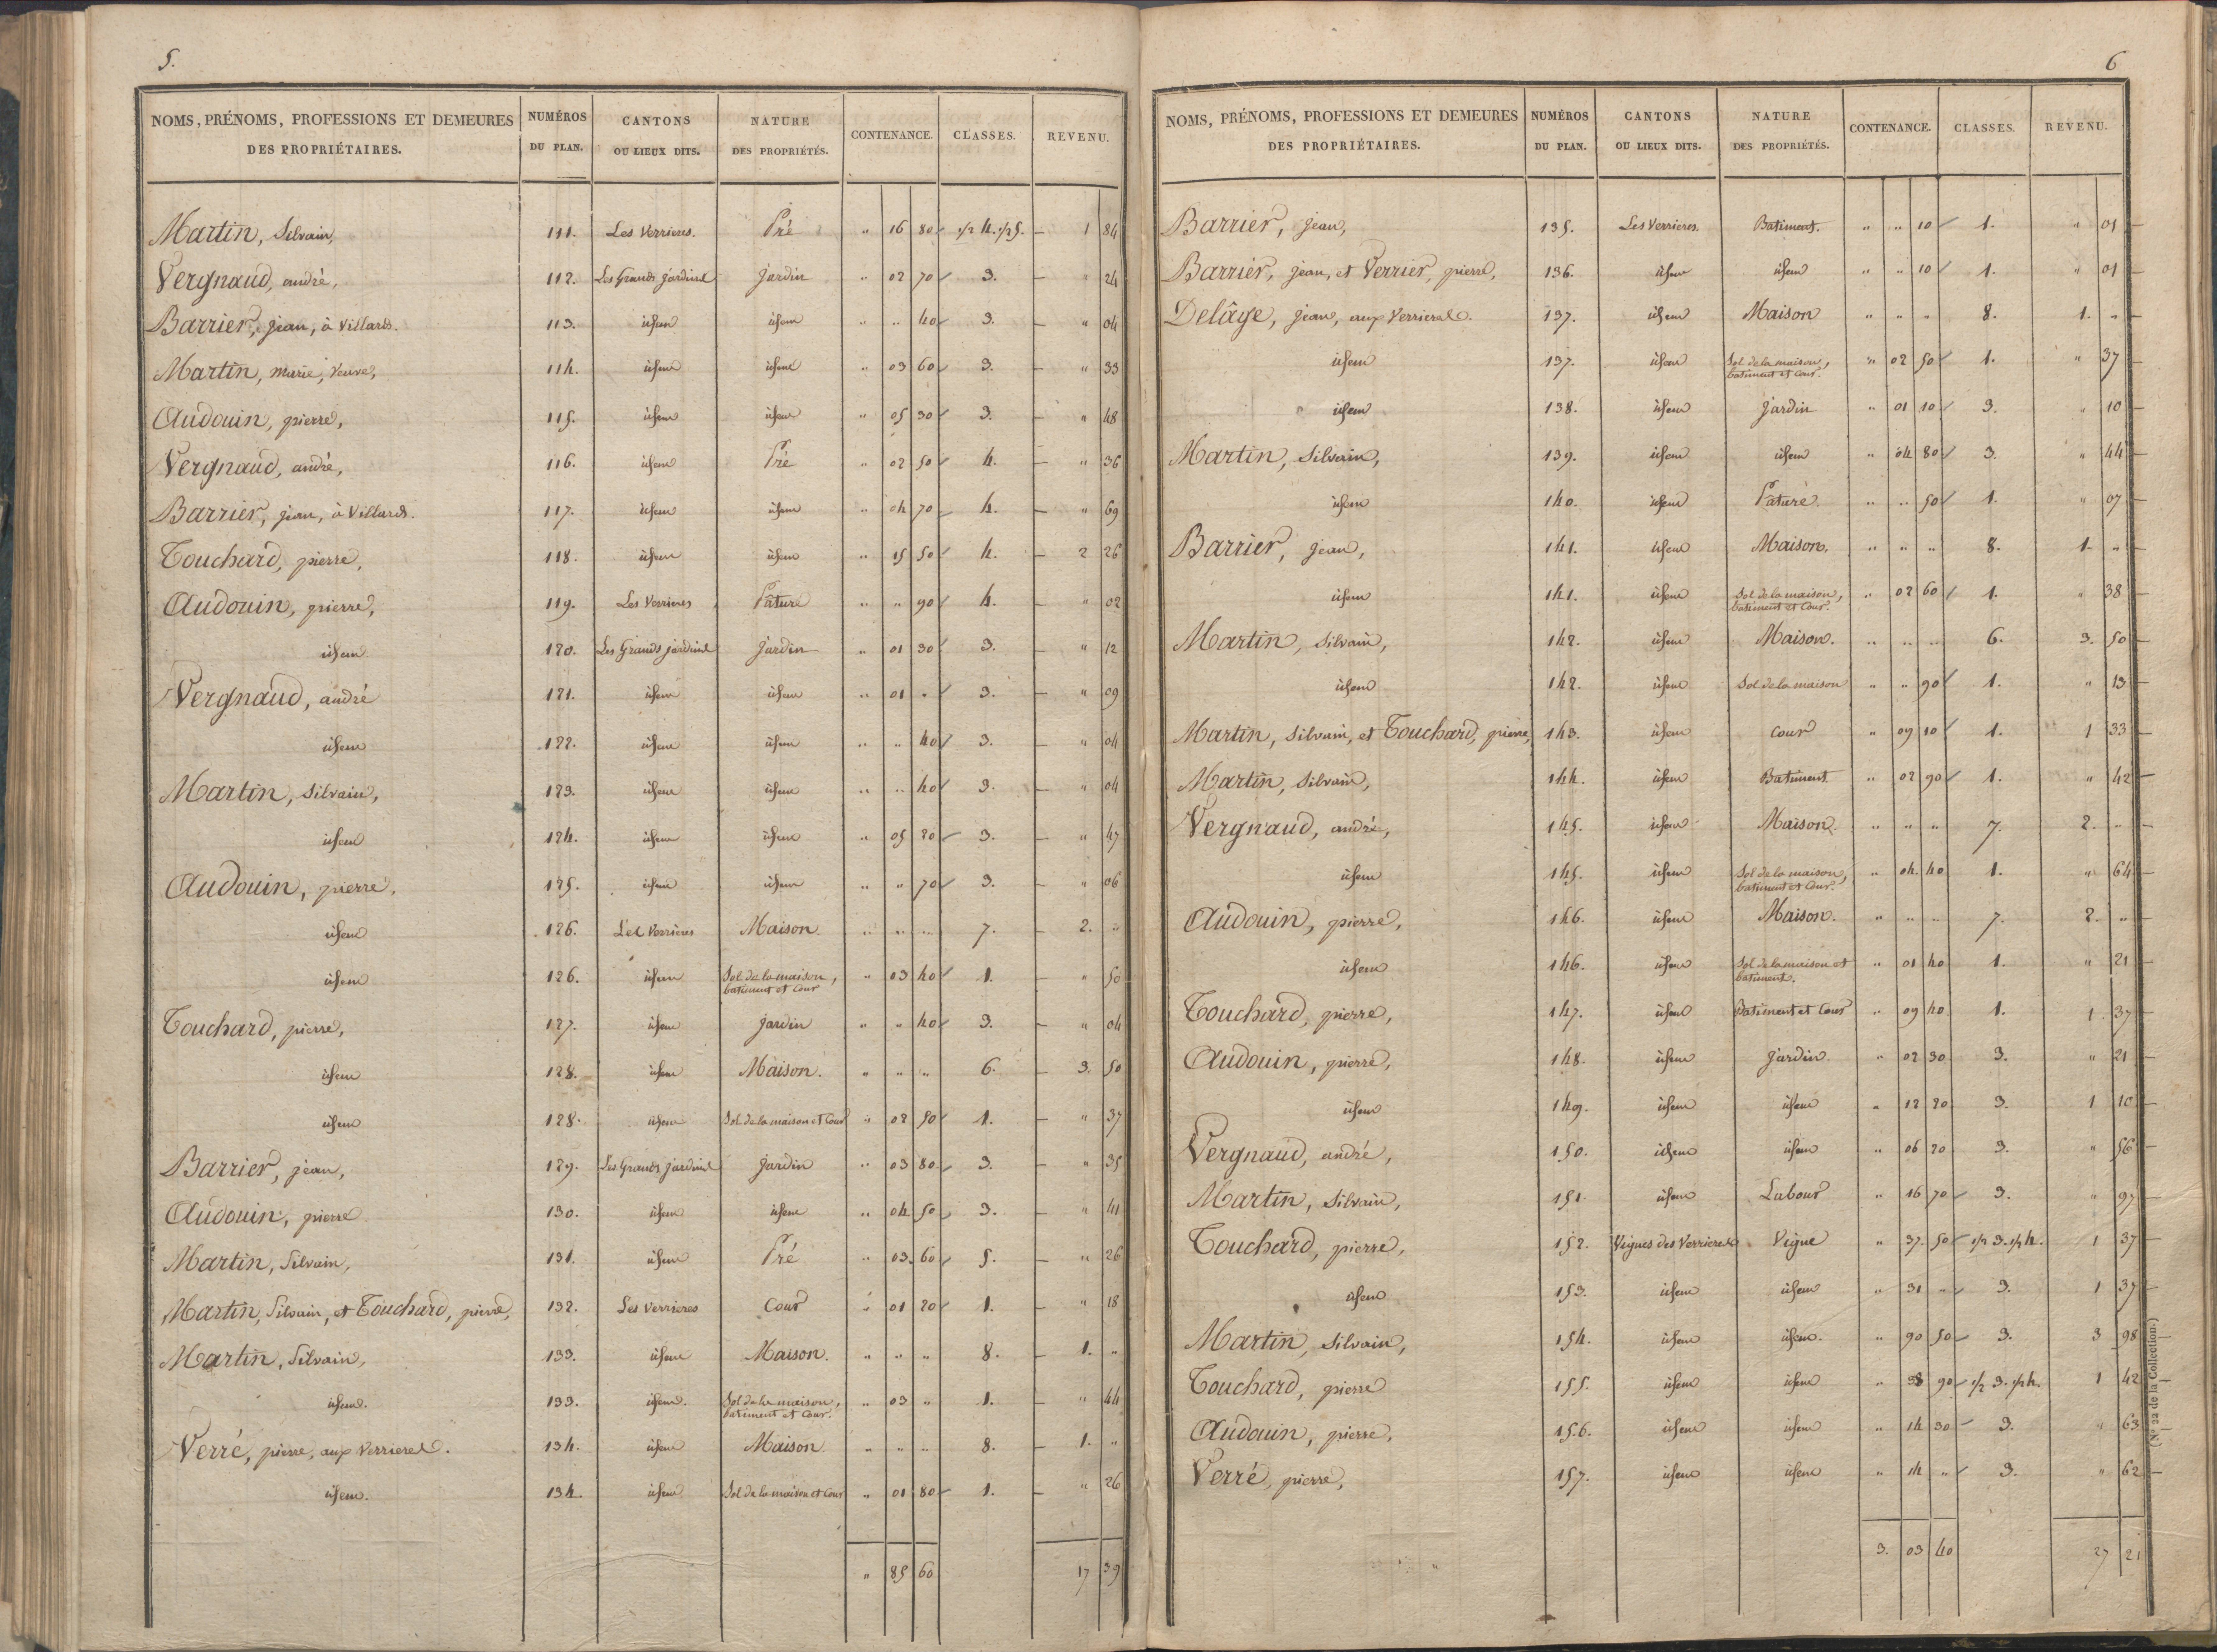 5.
NOMS, PRÉNOMS, PROFESSIONS ET DEMEURES DES PROPRIÉTAIRES. NUMÉROS DU PLAN. CANTONS OU LIEUX DITS. NATURE DES PROPRIÉTÉS. CONTENANCE. CLASSES. REVENU.
Martin, Silvain, 111. Les Verrieres. Pré " 16 80 1/2 4. 1/2 5. 1 84
Vergnaud, andré, 112. Les Grands jardins jardin " 02 70 3. " 24
Barrier, jean, à Villards. 113. idem idem " " 40 3. " 04
Martin, marie, veuve, 114. idem idem " 03 60 3. " 33
Audouin, pierre, 115. idem idem " 05 30 3. " 48
Vergnaud, andré, 116. idem Pré " 02 50 4. " 36
Barrier, jean, à Villards. 117. idem idem " 04 70 4. " 69
Touchard, pierre, 118. idem idem " 15 50 4. 2 26
Audouin, pierre, 119. Les Verrieres Pâture " " 90 4. " 02
idem 120. Les Grands jardins jardin " 01 30 3. " 12
Vergnaud, andré 121. idem idem " 01 " 3. " 09
idem 122. idem idem " " 40 3. " 04
Martin, Silvain, 123. idem idem " " 40 3. " 04
idem 124. idem idem " 05 20 3. " 47
Audouin, pierre, 125. idem idem " " 70 3. " 06
idem 126. Les Verrières Maison. " " " 7. 2. "
idem 126. idem Sol de la maison, batiment et cour " 03 40 1. " 50
Touchard, pierre, 127. idem jardin " " 40 3. " 04
idem 128. idem Maison. " " " 6. 3. 50
idem 128. idem Sol de la maison et Cour " 02 50 1. " 37
Barrier, jean, 129. Les Grands jardins jardin " 03 80 3. " 35
Audouin, pierre 130. idem idem " 04 50 3. " 41
Martin, Silvain, 131. idem Pré " 03 60 5. " 26
Martin, Silvain, et Touchard, pierre, 132. Les Verrieres Cour " 01 20 1. " 18
Martin, Silvain, 133. idem Maison. " " " 8. 1. "
idem. 133. idem. Sol de la maison, batiment et cour. " 03 " 1. " 44
Verré, pierre, aux Verrieres. 134. idem Maison " " " 8. 1. "
idem. 134. idem Sol de la maison et Cour " 01 80 1. " 26
" 85 60 17 39
6
NOMS, PRÉNOMS, PROFESSIONS ET DEMEURES DES PROPRIÉTAIRES. NUMÉROS DU PLAN. CANTONS OU LIEUX DITS. NATURE DES PROPRIÉTÉS. CONTENANCE. CLASSES. REVENU.
Barrier, jean, 135. Les Verrieres. Batiment. " " 10 1. " 01
Barrier, jean, et Verrier, pierre, 136. idem idem " " 10 1. " 01
Delâge, jean, aux Verrieres. 137. idem Maison " " " 8. 1. "
idem 137. idem Sol de la maison, batiment et Cour. " 02 50 1. " 37
idem 138. idem jardin " 01 10 3. " 10
Martin, Silvain, 139. idem idem " 04 80 3. " 44
idem 140. idem Pâture. " " 50 1. " 07
Barrier, jean, 141. idem Maison. " " " 8. 1. "
idem 141. idem Sol de la maison, batiment et Cour. " 02 60 1. " 38
Martin, Silvain, 142. idem Maison. " " " 6. 3. 50
idem 142. idem Sol de la maison " " 90 1. " 13
Martin, Silvain, et Touchard, pierre, 143. idem cour " 09 10 1. 1 33
Martin, Silvain, 144. idem Batiment. " 02 90 1. " 42
Vergnaud, andré, 145. idem Maison. " " " 7. 2. "
idem 145. idem Sol de la maison, batiment et Cour. " 04 40 1. " 64
Audouin, pierre, 146. idem Maison. " " " 7. 2. "
idem 146. idem Sol de la maison et batiment. " 01 40 1. " 21
Touchard, pierre, 147. idem Batiment et Cour " 09 40 1. 1 37
Audouin, pierre, 148. idem jardin " 02 30 3. " 21
idem 149. idem idem " 12 20 3. 1 10
Vergnaud, andré, 150. idem idem " 06 20 3. " 56
Martin, Silvain, 151. idem Labour " 16 70 3. " 97
Touchard, pierre, 152. Vignes des Verrieres Vigne " 37 50 1/2 3. 1/2 4. 1 37
idem 153. idem idem " 31 " 3. 1 37
Martin, Silvain, 154. idem idem. " 90 50 3. 3 98
Touchard, pierre 155. idem idem " 38 90 1/2 3. 1/2 4. 1 42
Audouin, pierre, 156. idem idem " 14 30 3. " 63
Verré, pierre, 157. idem idem " 14 " 3. " 62
3. 03 40 27 21
(N° 32 de la Collection.)